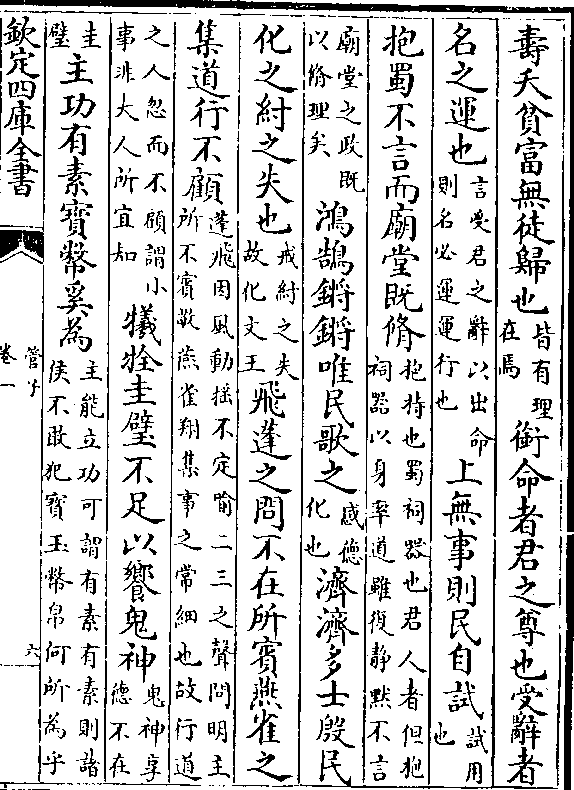 壽夭貧富無徒歸也皆有理在焉銜命者君之尊也受辭者
名之運也言受君之辭以出命則名必運運行也上無事則民自試試用也
抱蜀不言而廟堂既脩抱持也蜀祠器也君人者但抱祠器以身率道雖復静默不言
廟堂之政既以脩理矣鴻鵠鏘鏘唯民歌之感德化也濟濟多士殷民
化之紂之失也戒紂之失故化文王飛蓬之問不在所賓燕雀之
集道行不顧蓬飛因風動揺不定喻二三之聲問明主所不賓敬燕雀翔集事之常細也故行道
之人忽而不顧謂小事非大人所宜知犧牷圭璧不足以饗鬼神鬼神享德不在
圭璧主功有素寳幣奚為主能立功可謂有素有素則諸侯不敢犯寳玉幣帛何所為乎
欽定四庫全書
管子
卷一
六